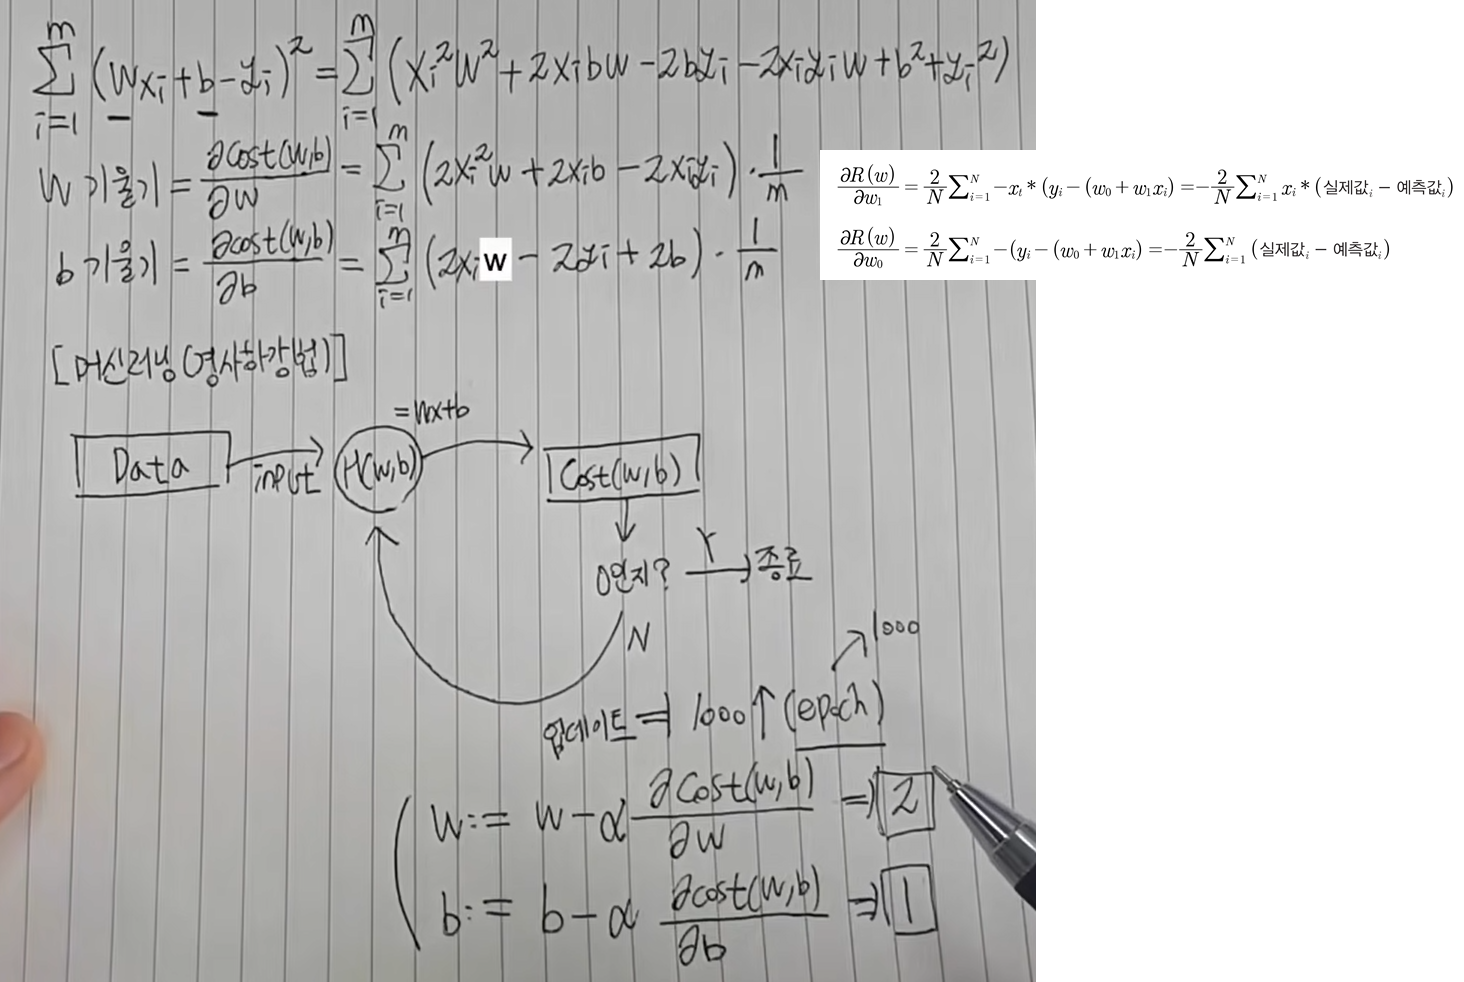 m m
∑ (wxᵢ+b-yᵢ)² = ∑ (xᵢ²w²+2xᵢbw-2byᵢ-2xᵢyᵢw+b²+yᵢ²)
i=1 i=1
w 기울기 = ∂cost(w,b)/∂w = ∑ᵢ₌₁ᵐ (2xᵢ²w + 2xᵢb - 2xᵢyᵢ) · 1/m
b 기울기 = ∂cost(w,b)/∂b = ∑ᵢ₌₁ᵐ (2xᵢw - 2yᵢ + 2b) · 1/m
∂R(w)/∂w₁ = 2/N ∑ᵢ₌₁ᴺ -xₜ * (yᵢ - (w₀ + w₁xᵢ) =- 2/N ∑ᵢ₌₁ᴺ xᵢ * (실제값ᵢ - 예측값ᵢ)
∂R(w)/∂w₀ = 2/N ∑ᵢ₌₁ᴺ -(yᵢ - (w₀ + w₁xᵢ) =- 2/N ∑ᵢ₌₁ᴺ (실제값ᵢ - 예측값ᵢ)
[머신러닝(경사하강법)]
=wx+b
Data input H(w,b) Cost(w,b)
0인지? Y 종료
N
1000
업데이트 ⇒ 1000↑ (epoch)
w:= w-α ∂cost(w,b)/∂w ⇒ 2
b:= b-α ∂cost(w,b)/∂b ⇒ 1